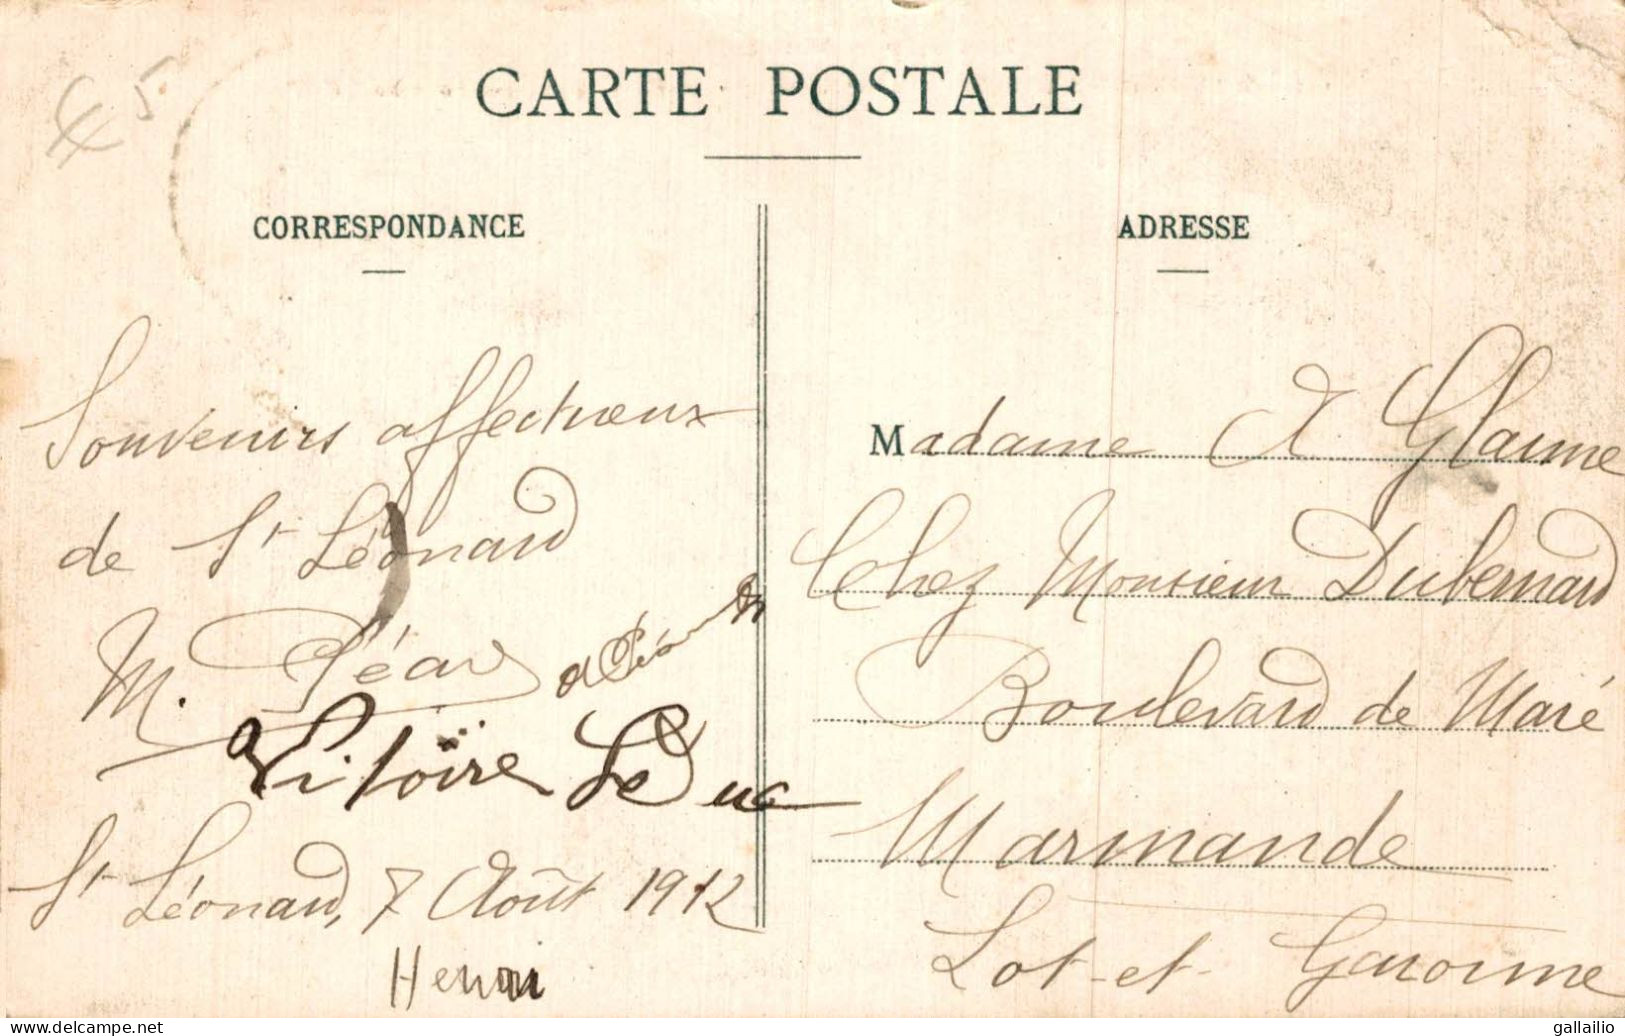 CARTE POSTALE
CORRESPONDANCE
Souvenirs affectueux
de St Léonard
M. Péan
Vitoïre Le Duc
St Léonard, 7 Août 1912
Henri
ADRESSE
Madame A. Glaume
Chez Monsieur Dubernard
Boulevard de Maré
Marmande
Lot-et-Garonne
5
delcampe.net
gallailio